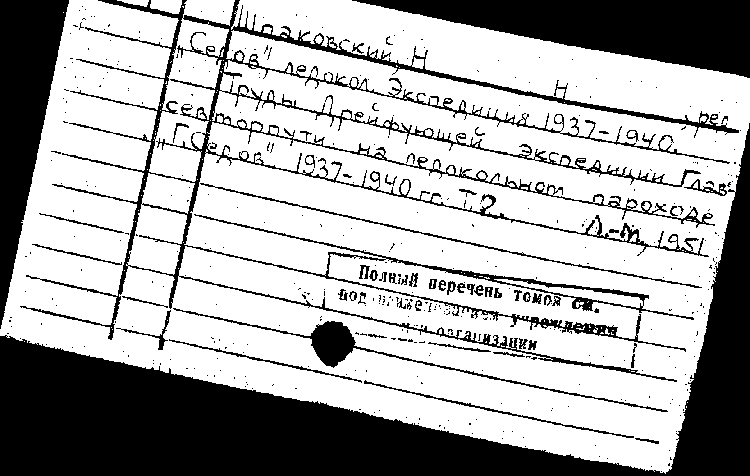 Шпаковский, Н Н , ред
„Седов", ледокол. Экспедиция 1937-1940.
Труды Дрейфующей экспедиции Глав-
севморпути на ледокольном пароходе
„Г.Седов" 1937-1940 гг. Т.2. Л.-М., 1951
Полный перечень томов см.
под наименованием учреждения
или организации